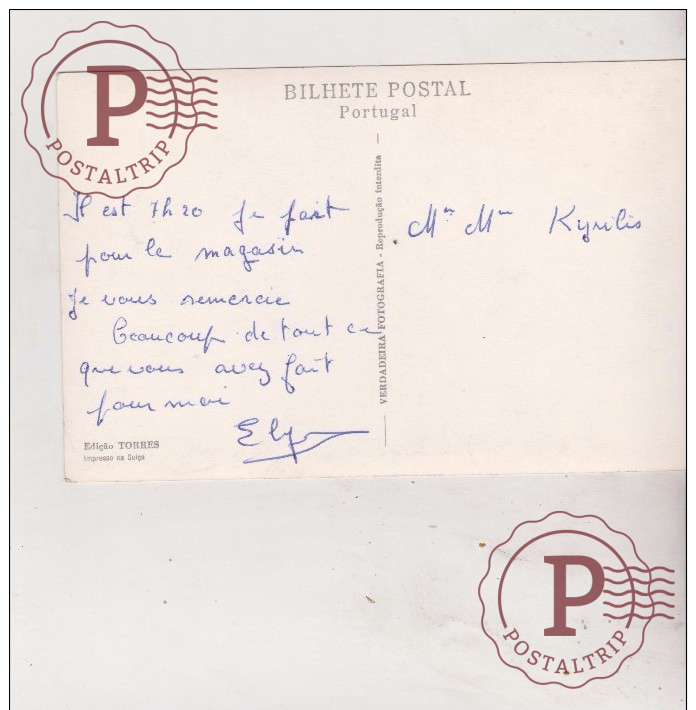 BILHETE POSTAL
Portugal
Il est 7h20 Je pars
pour le magasin
Je vous remercie
beaucoup de tout ce
que vous avez fait
pour moi
Edição TORRES
Impresso na Suiça
VERDADEIRA FOTOGRAFIA - Reprodução interdita
Mr Mm Kyrilis
P
POSTALTRIP
P
POSTALTRIP